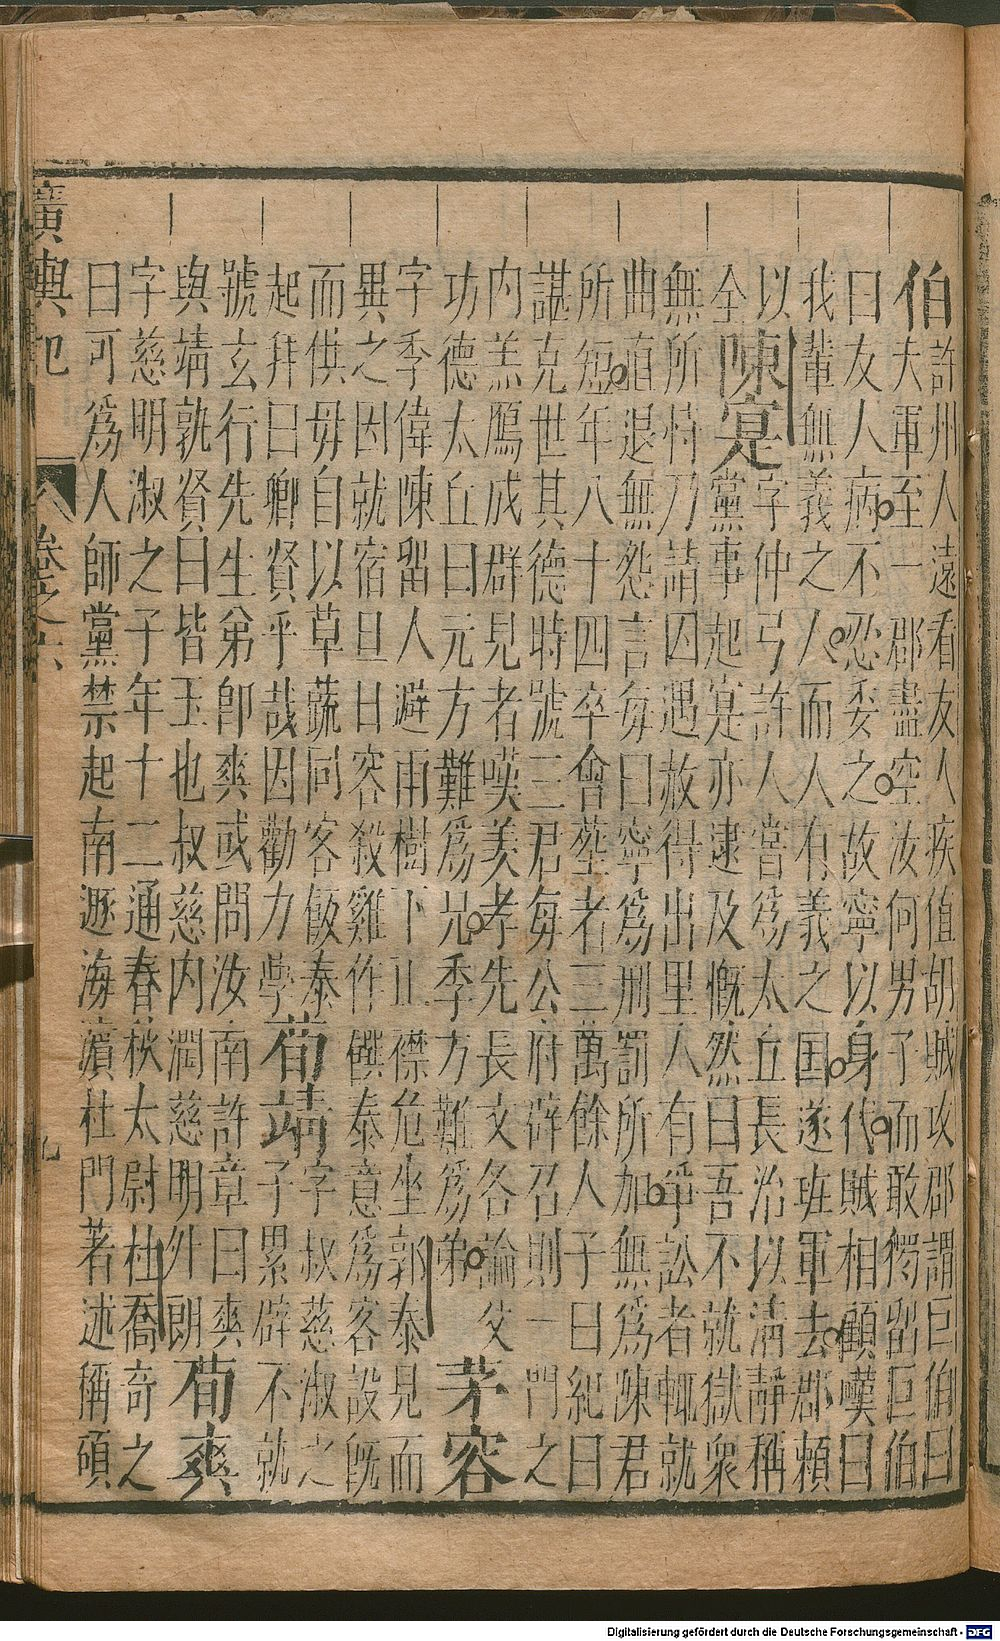 伯許州人遠看友人疾值胡賊攻郡謂巨伯曰
大軍至一郡盡空汝何男子而敢獨留巨伯
曰友人病不忍委之故寧以身代賊相顧嘆曰
我輩無義之人而人有義之国遂班軍去郡賴
以
全
陳寔
字仲弓許人嘗爲太丘長治以清靜稱
黨事起寔亦逮及慨然曰吾不就獄衆
無所恃乃請囚遇赦得出里人有爭訟者輒就
曲直退無怨言每曰寧爲刑罰所加無爲陳君
所短年八十四卒會葬者三萬餘人子曰紀曰
諶克世其德時號三君每公府辟召則一門之
内羔鴈成群見者嘆美孝先長文各論父
功德太丘曰元方難爲兄季方難爲弟
茅容
字季偉陳畱人避雨樹下正襟危坐郭泰見而
異之因就宿旦日容殺雞作饌泰意爲客設旣
而供毋自以草蔬同客飯泰
起拜曰卿賢乎哉因勸力學
荀靖
字叔慈淑之
子累辟不就
號玄行先生弟卽爽或問汝南許章曰爽
與靖孰賢曰皆玉也叔慈内潤慈明外朗
荀爽
字慈明淑之子年十二通春秋太尉杜喬奇之
曰可爲人師黨禁起南遯海濱杜門著述稱碩
廣輿記 卷之六 九
Digitalisierung gefördert durch die Deutsche Forschungsgemeinschaft - DFG